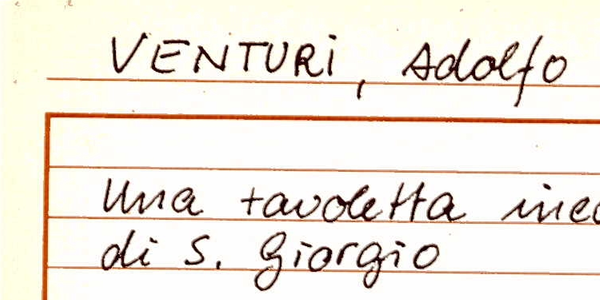 VENTURI, Adolfo
Una tavoletta
di S. Giorgio